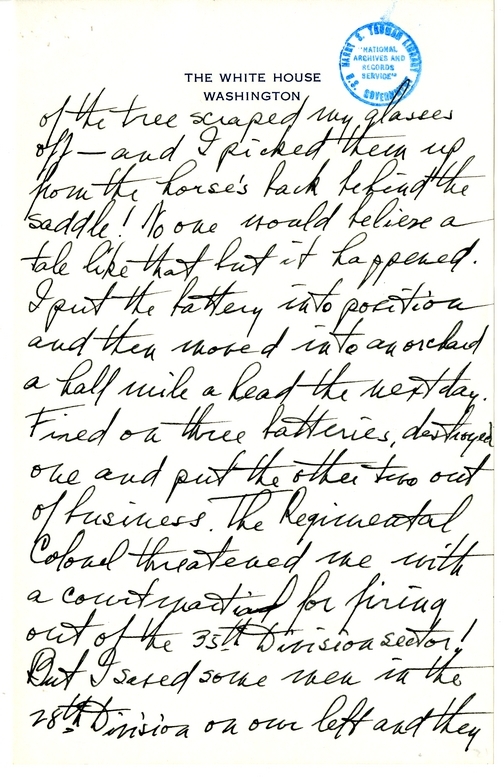 THE WHITE HOUSE
WASHINGTON
HARRY S. TRUMAN LIBRARY
"NATIONAL
ARCHIVES AND
RECORDS
SERVICE"
U.S. GOVERNMENT
of the tree scraped my glasses
off—and I picked them up
from the horse's back behind the
saddle! No one would believe a
tale like that but it happened.
I put the battery into position
and then moved into an orchard
a half mile ahead the next day.
Fired on three batteries, destroyed
one and put the other two out
of business. The Regimental
Colonel threatened me with
a court martial for firing
out of the 35th Division sector!
But I saved some men in the
28th Division on our left and they